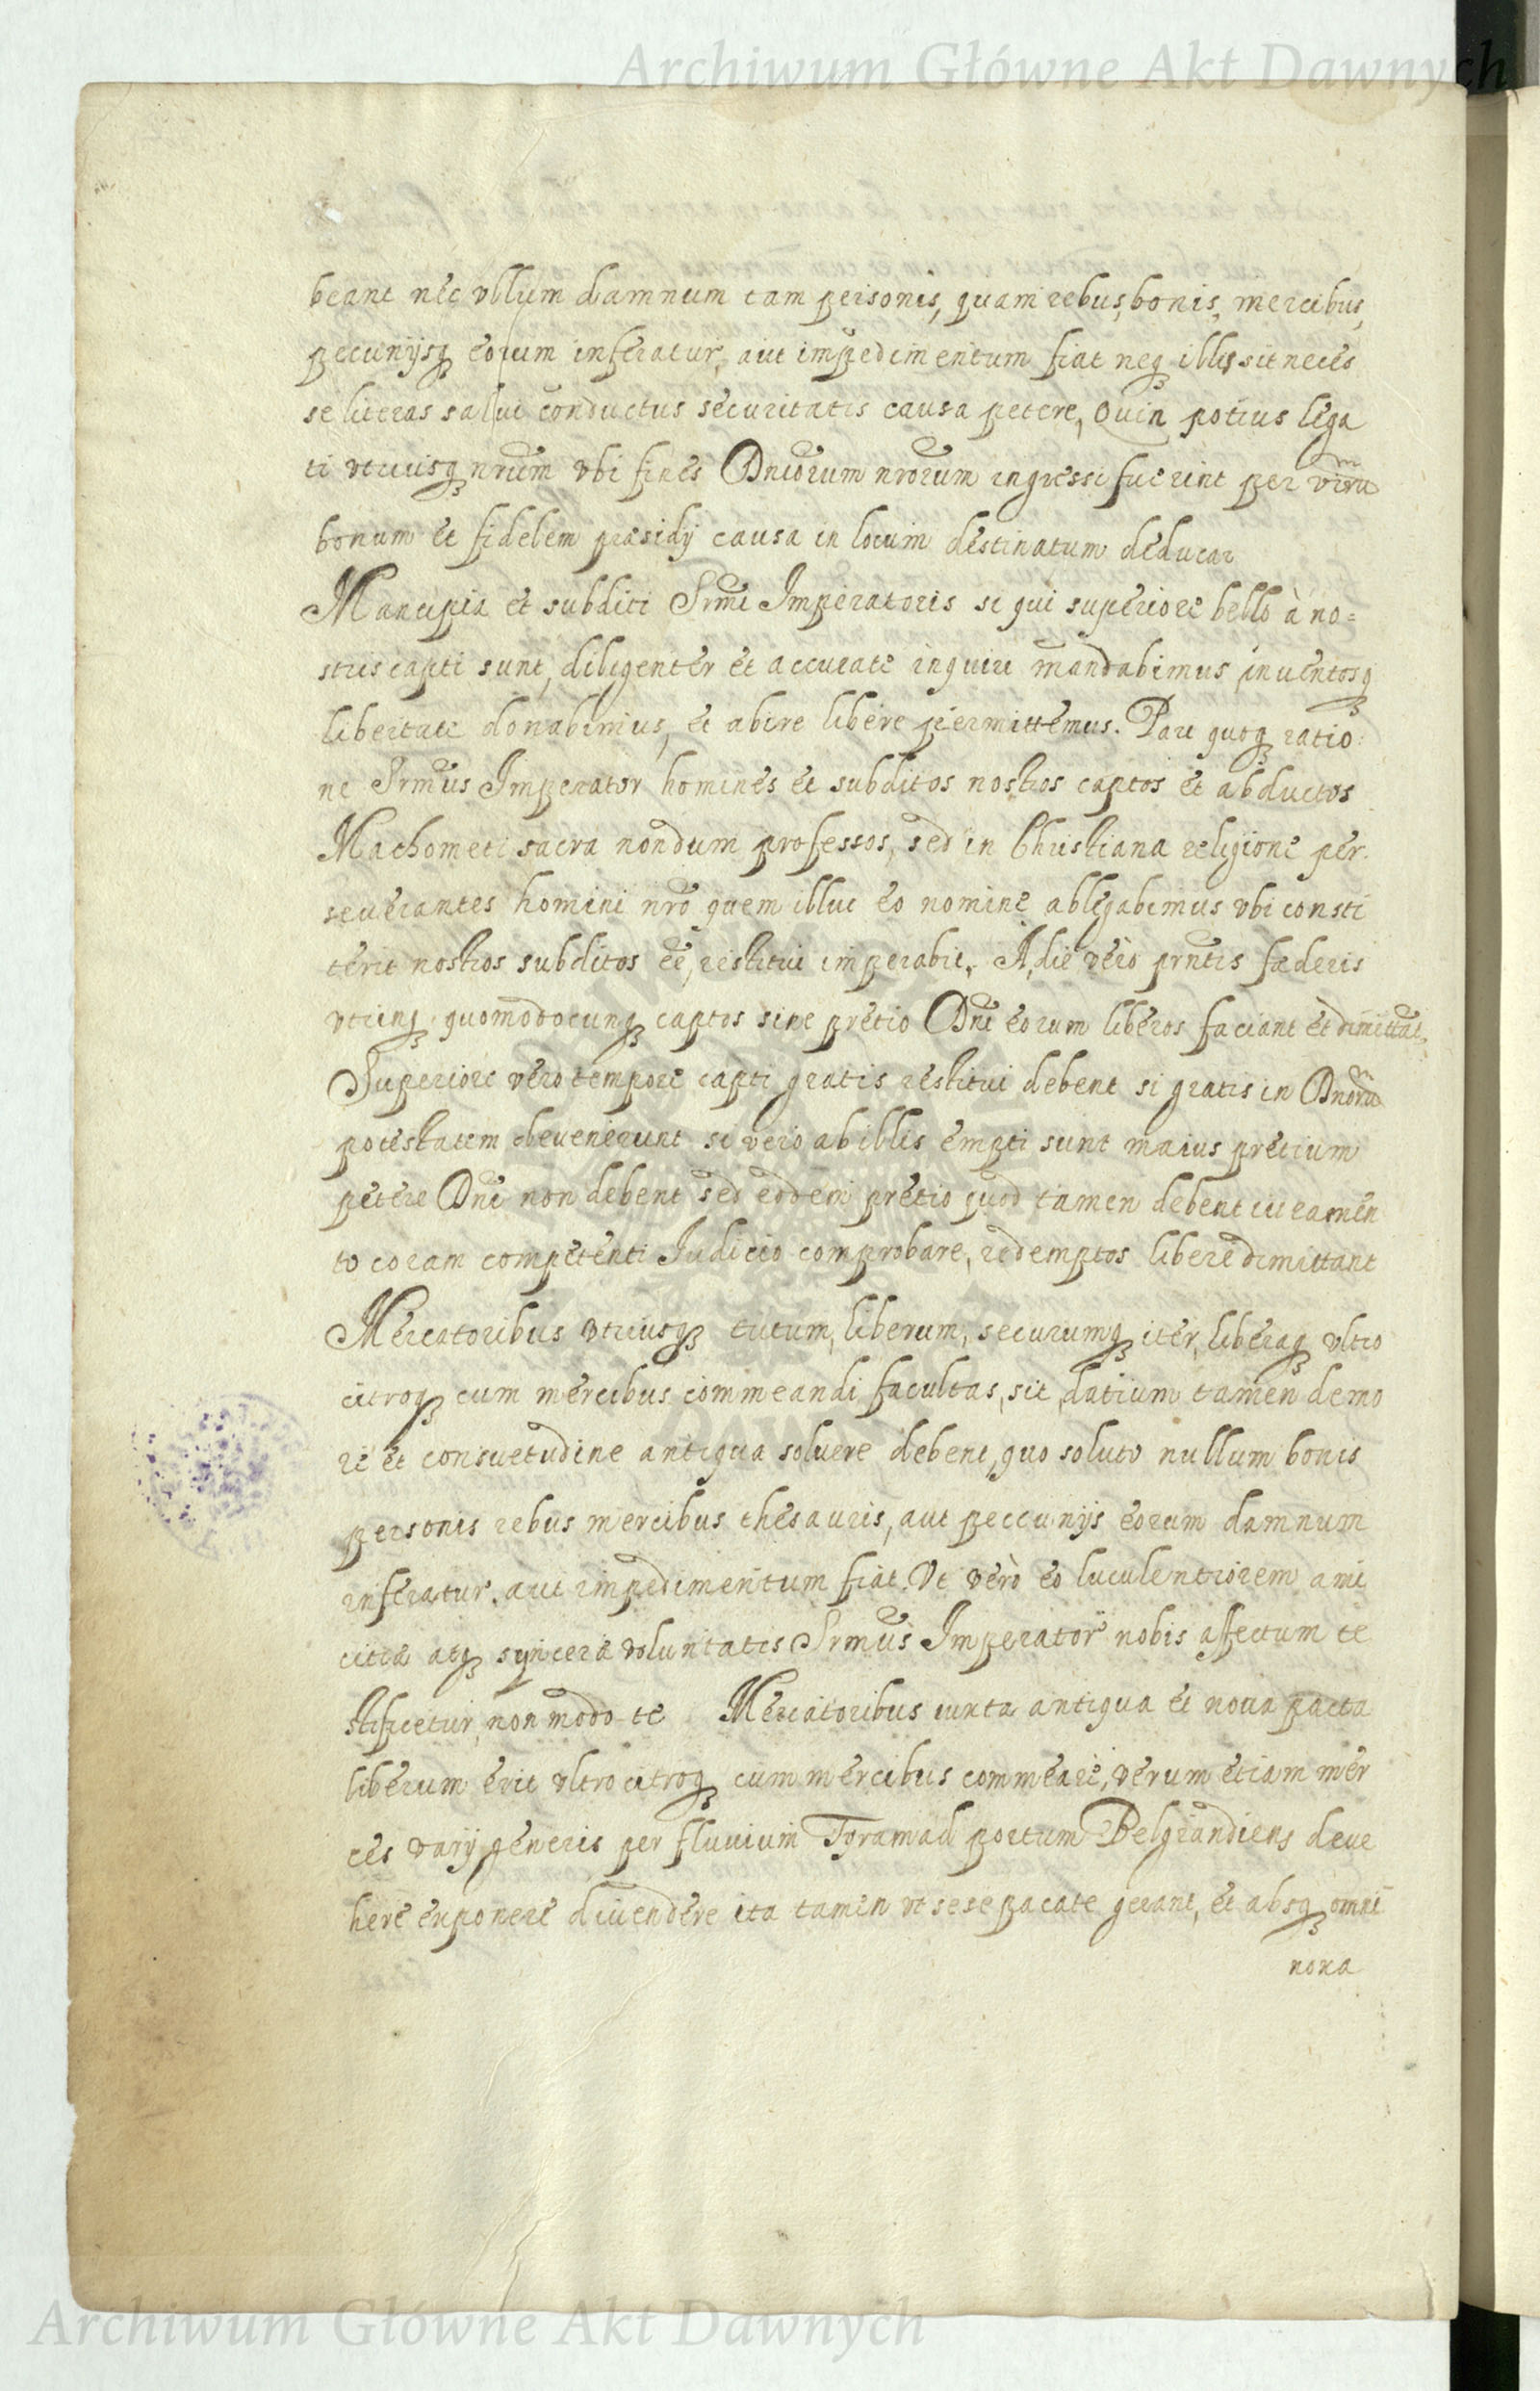 Archiwum Główne Akt Dawnych
beant nec vllum damnum tam personis, quam rebus, bonis, mercibus,
pecunijsq eorum inferatur, aut impedimentum fiat neq illis sit neces
se literas salui conductus securitatis causa petere, Quin potius lega
ti vtriusq nrum vbi fines Dniorum nrorum ingressi fuerint per viru
bonum et fidelem præsidij causa in locum destinatum deducar
Mancipia et subditi Srmi Imperatoris si qui superiore bello à no=
stris capti sunt, diligenter et accurate inquiri mandabimus inuentosq
libertate donabimus, et abire libere permittemus. Pari quoq ratio:
ne Srmus Imperator homines et subditos nostros captos et abductos
Machometi sacra nondum professos, sed in Christiana religione per.
seuerantes homini nro quem illuc eo nomine ablegabimus vbi consti
terit nostros subditos ee, restitui imperabit. A, die vero prntis fæderis
vtrinq quomodocunq captos sine pretio Dni eorum liberos faciant et dimittat.
Superiore vero tempore capti gratis restitui debent si gratis in Dnoru
potestatem deuenerunt si vero ab illis empti sunt maius pretium
petere Dni non debent sed eodem pretio quod tamen debent iuramen
to coram competenti Iudicio comprobare, redemptos libere dimittant
Mercatoribus vtriusq tutum, liberum, securumq iter, liberaq vltro
citroq cum mercibus commeandi facultas, sit, datium tamen de mo
re et consuetudine antiqua soluere debent, quo soluto nullum bonis
personis rebus mercibus thesauris, aut peccunijs eorum damnum
inferatur. aut impedimentum fiat. Vt verò eo luculentiorem ami
citiæ atq synceræ voluntatis Srmus Imperator nobis affectum te
stificetur, non modo te Mercatoribus iuxta antiqua et noua pacta
liberum erit vltro citroq cum mercibus commeare, verum etiam mer
ces varij generis per fluuium Tyram ad portum Belgrandiens deue
here exponere diuendere ita tamen vt sese pacate gerant, et absq omni
noxa
Archiwum Główne Akt Dawnych